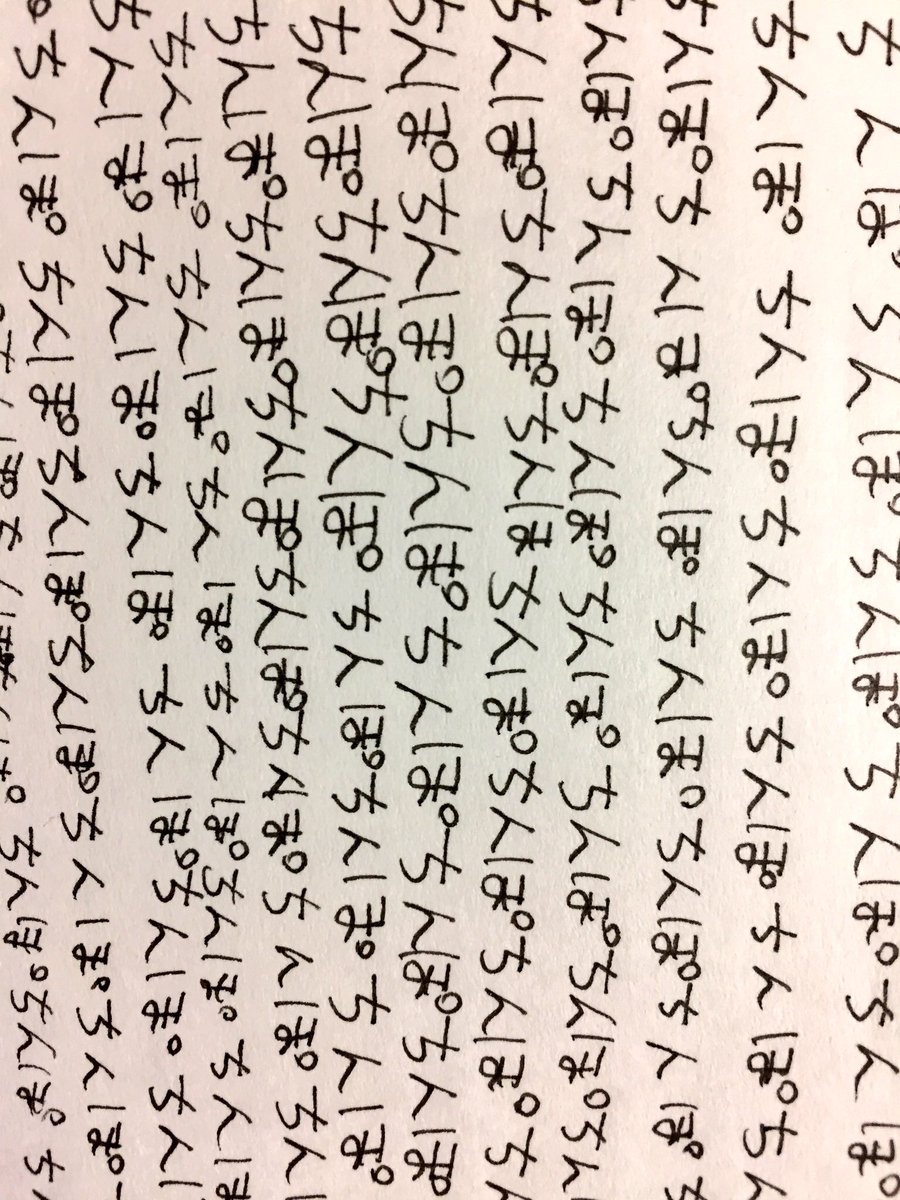 ちんぽちんぽちんぽちんぽちんぽ
ちんぽちんぽちんぽちんぽちんぽちん
ちんぽちんぽちんぽちんぽちんぽちんぽち
ちんぽちんぽちんぽちんぽちんぽちんぽちん
ちんぽちんぽちんぽちんぽちんぽちんぽちん
ちんぽちんぽちんぽちんぽちんぽちんぽ
ちんぽちんぽちんぽちんぽちんぽちんぽ
ちんぽちんぽちんぽちんぽちんぽちんぽちん
ちんぽちんぽちんぽちんぽちんぽちんぽ
ちんぽちんぽちんぽちんぽちんぽちん
ちんぽちんぽちんぽちんぽちんぽちんぽ
ちんぽちんぽち